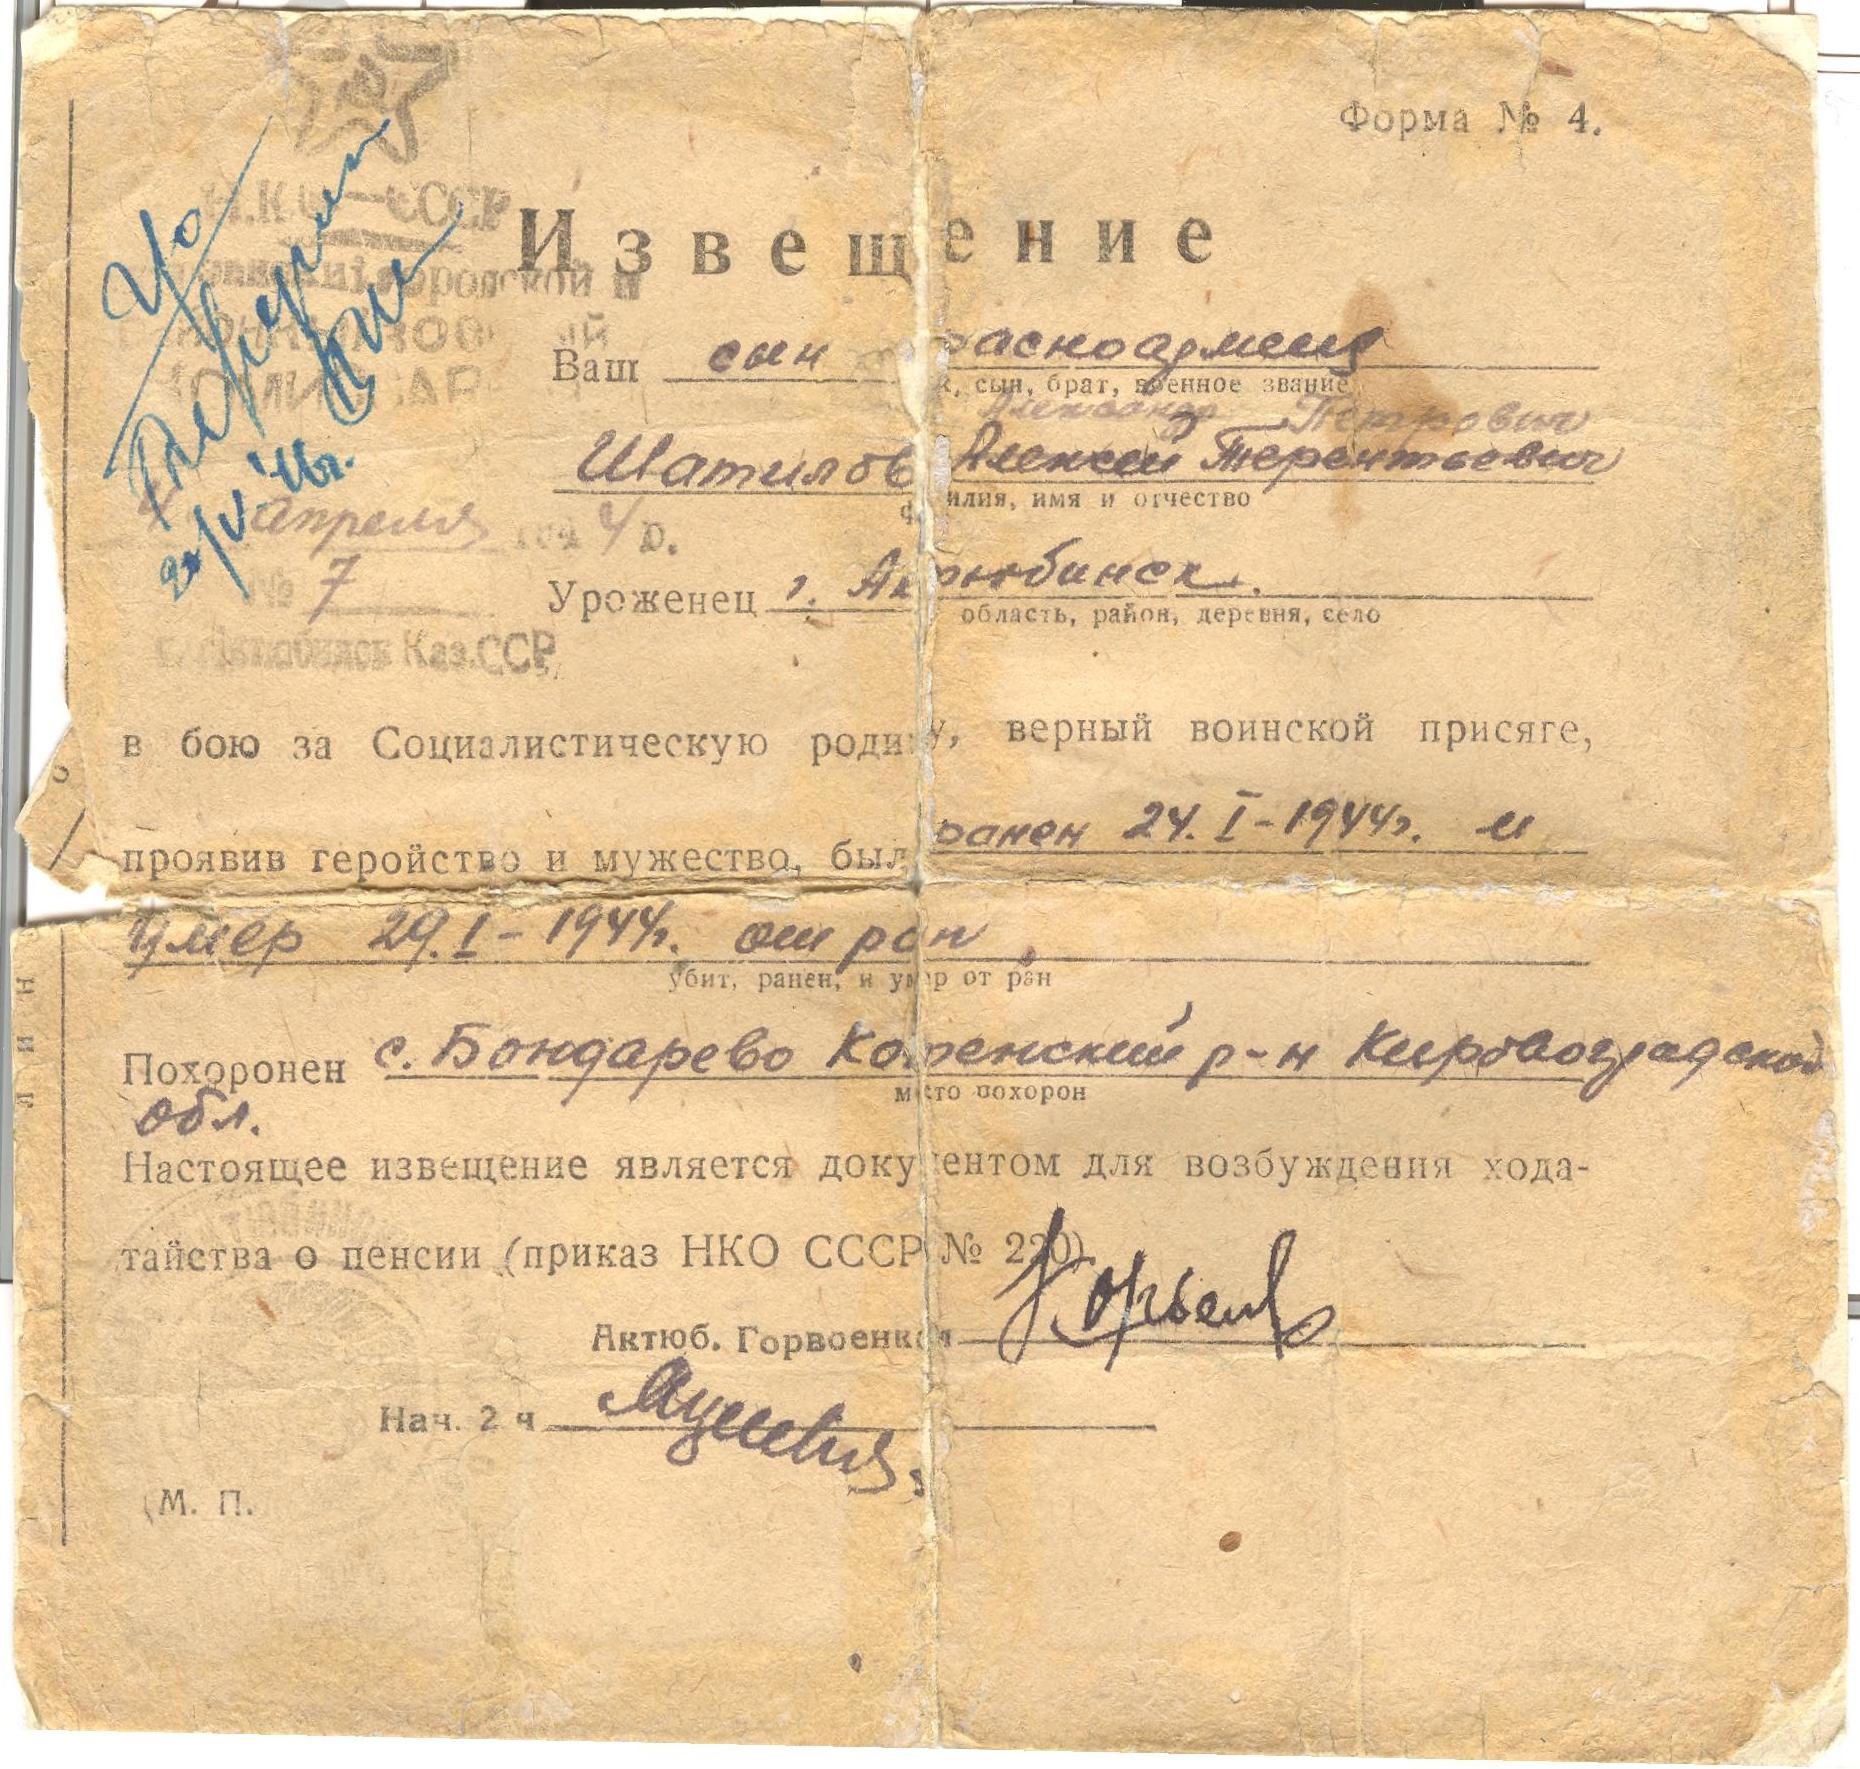 Форма № 4.
СССР
Извещение
городской и
Ваш сын красноармеец
сын, брат, военное звание
Александр Петрович
Шатилов Алексей Терентьевич
фамилия, имя и отчество
апреля 1944 г.
№ 7
Уроженец г. Актюбинск.
область, район, деревня, село
г. Актюбинск Каз.ССР
в бою за Социалистическую родину, верный воинской присяге,
проявив геройство и мужество, был ранен 24.I-1944г. и
умер 29.I-1944г. от ран
убит, ранен, и умер от ран
Похоронен с. Бондарево Кировоградской
р-н
место похорон
обл.
Настоящее извещение является документом для возбуждения хода-
тайства о пенсии (приказ НКО СССР № 220)
Актюб. Горвоенком
Нач. 2 ч
М. П.